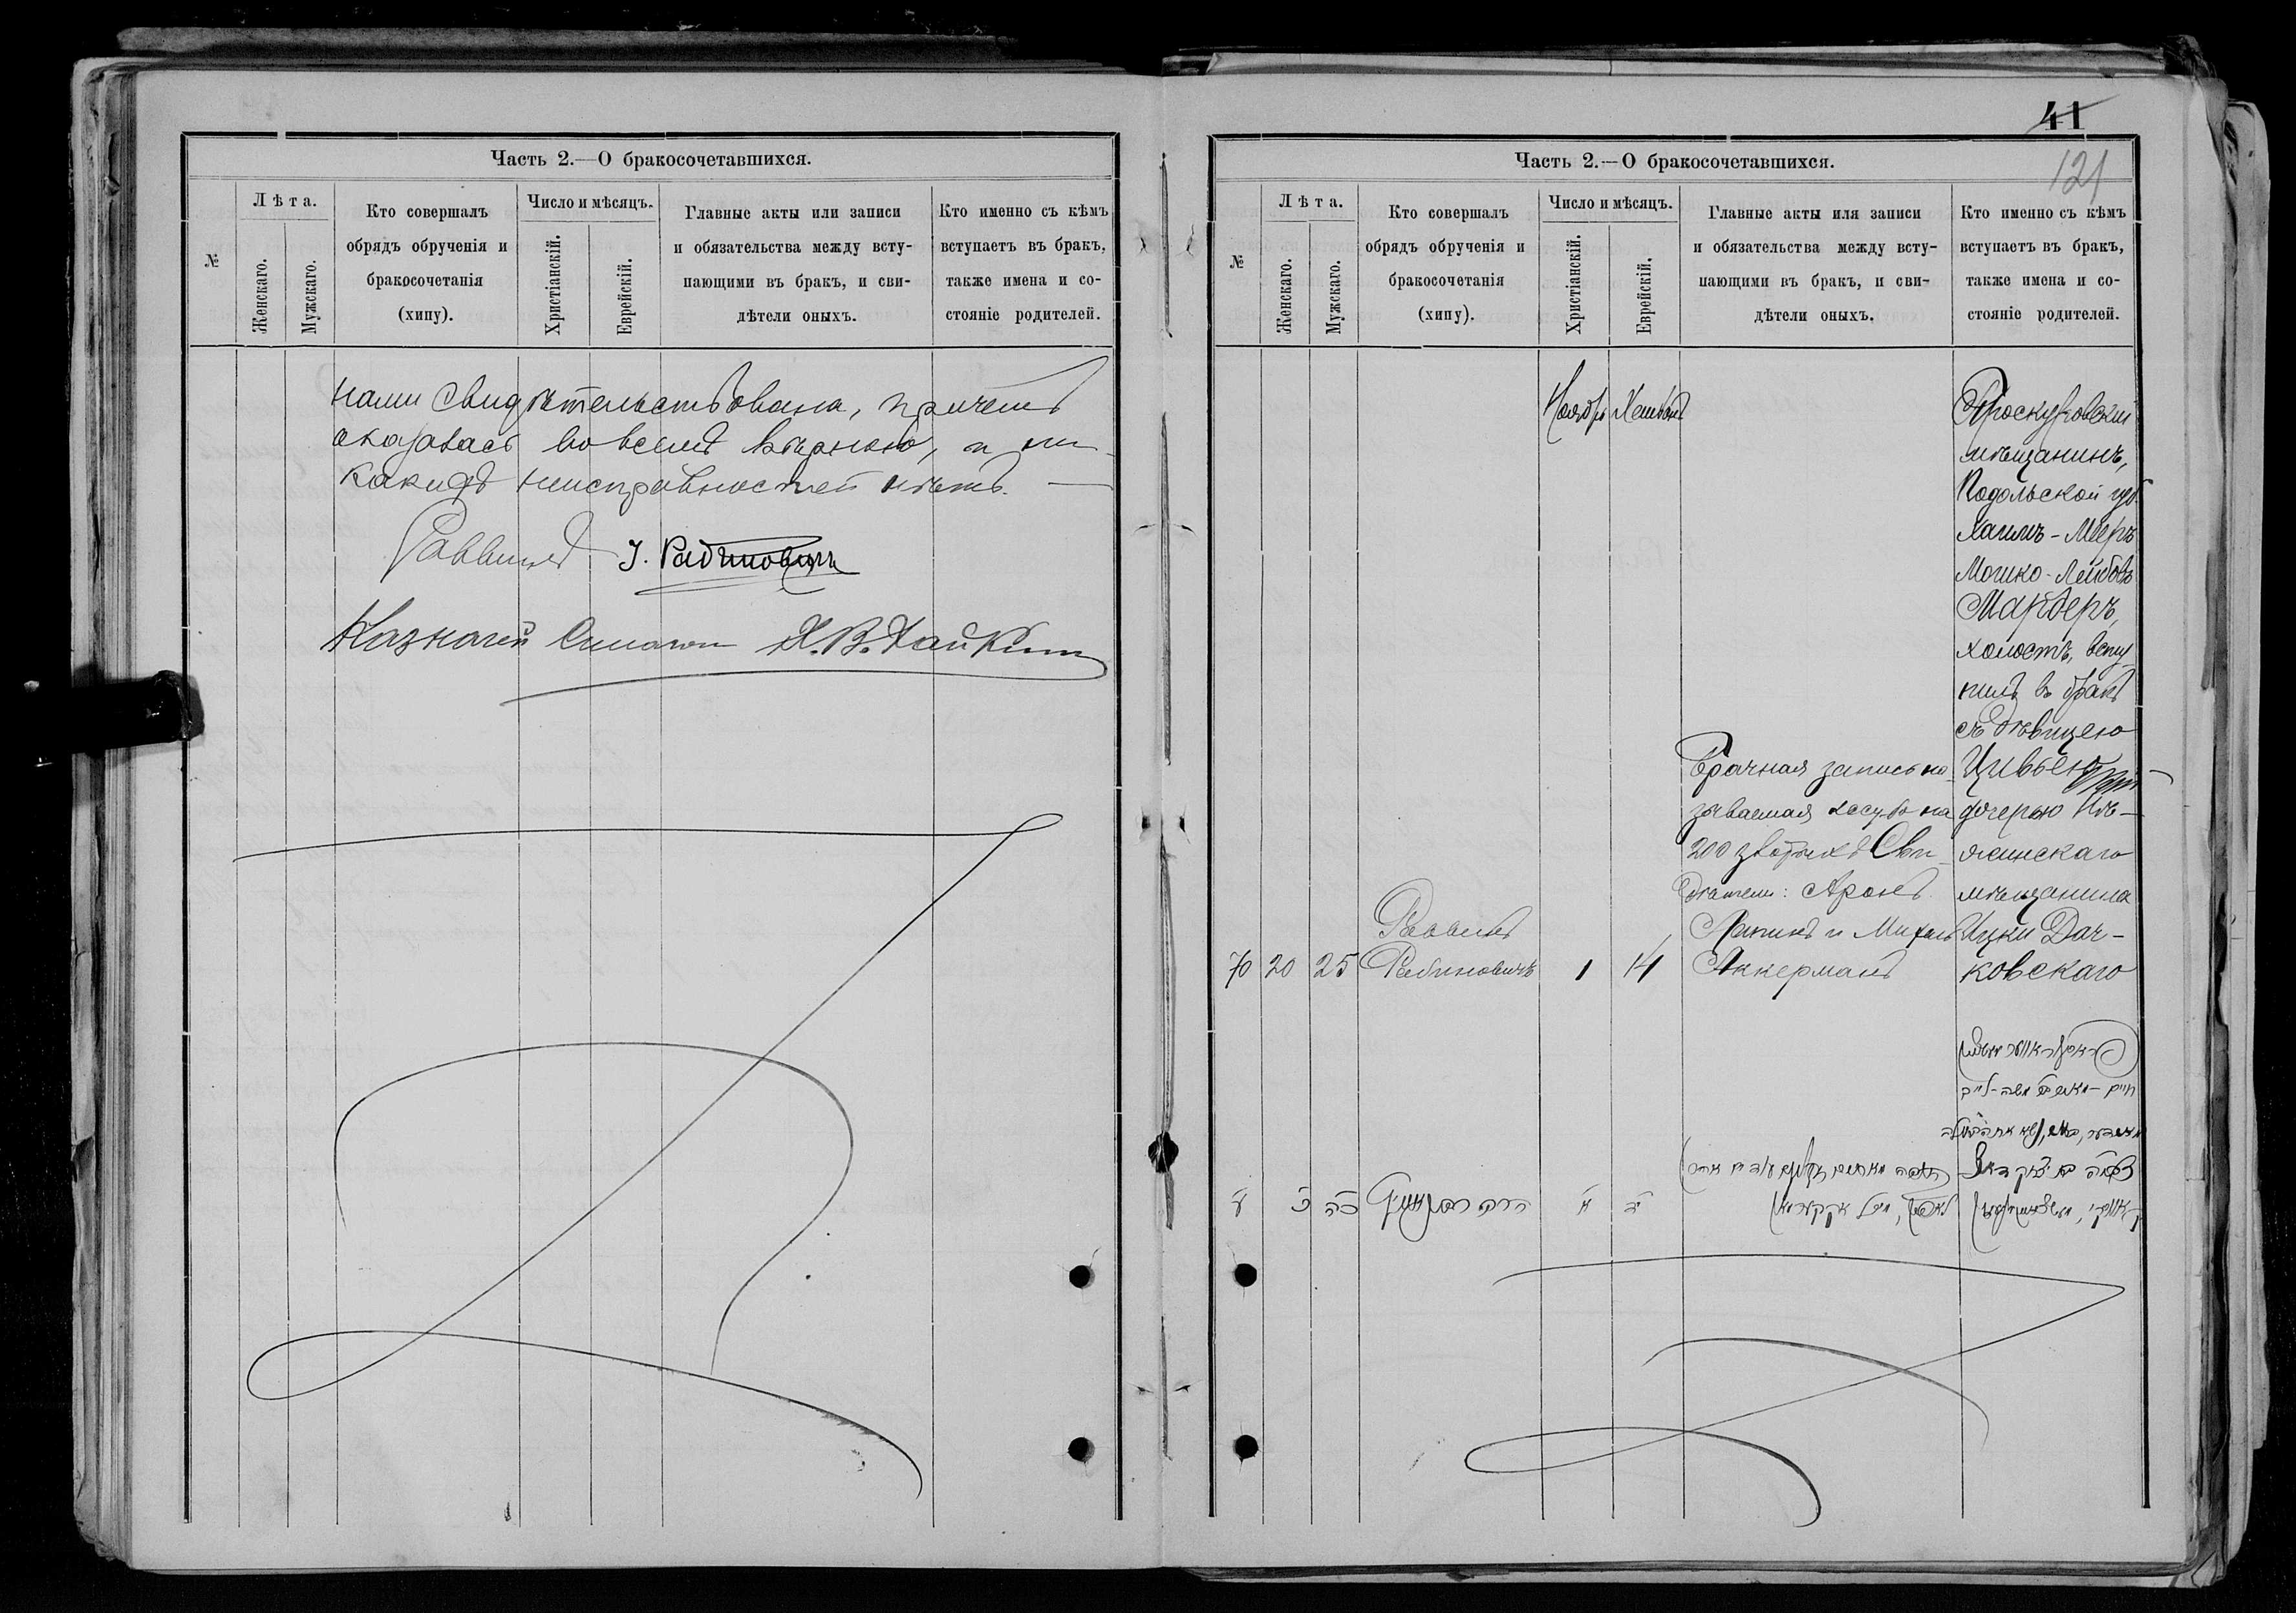 Часть 2.—О бракосочетавшихся.
№
Лѣта.
Женскаго.
Мужскаго.
Кто совершалъ
обрядъ обрученія и
бракосочетанія
(хипу).
Число и мѣсяцъ.
Христіанскій.
Еврейскій.
Главные акты или записи
и обязательства между всту-
пающими въ бракъ, и сви-
дѣтели оныхъ.
Кто именно съ кѣмъ
вступаетъ въ бракъ,
также имена и со-
стояніе родителей.
нами свидѣтельствована, причемъ
оказалась во всемъ вѣрною, и ни-
какихъ неисправностей нѣтъ.
Раввинъ І. Рабиновичъ
Казначей Х.В. Хайкин
41
121
Часть 2.—О бракосочетавшихся.
№
Лѣта.
Женскаго.
Мужскаго.
Кто совершалъ
обрядъ обрученія и
бракосочетанія
(хипу).
Число и мѣсяцъ.
Христіанскій.
Еврейскій.
Главные акты или записи
и обязательства между всту-
пающими въ бракъ, и сви-
дѣтели оныхъ.
Кто именно съ кѣмъ
вступаетъ въ бракъ,
также имена и со-
стояніе родителей.
70
20
25
Раввинъ
Рабиновичъ
Ноябрь
1
Хешванъ
14
Брачная запись на-
зываемая кесубо на
200 злотыхъ Сви-
дѣтели: Аронъ
Лапинъ и Михель
Аккерманъ
Проскуровскій
мѣщанинъ,
Подольской губ.
Хаимъ-Мееръ
Мошко-Лейбовъ
Мардеръ,
холостъ, всту-
пилъ въ бракъ
съ дѣвицею
Цивьею
дочерью Нѣ-
жинскаго
мѣщанина
Ицки Дач-
ковскаго
ע
כ
כה
הרב ראבינאוויץ
א
יד
חיים-מאיר משה-לייב